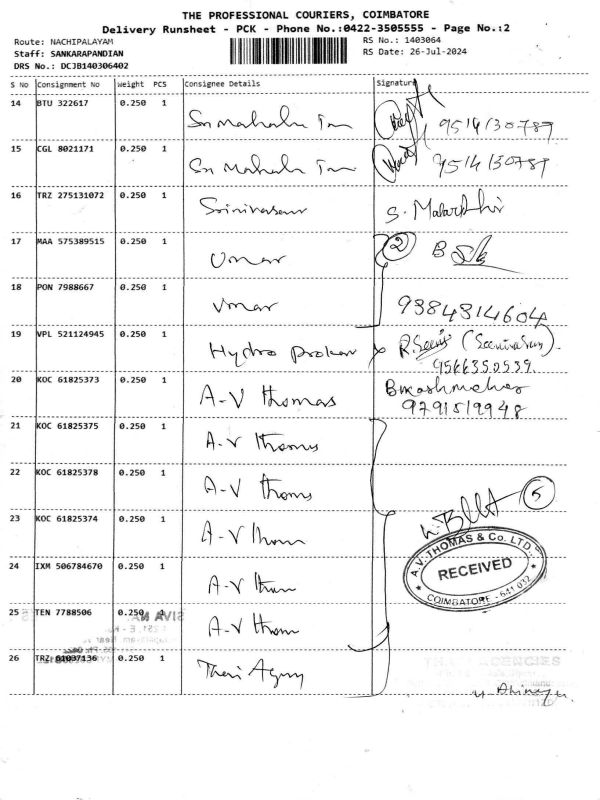 THE PROFESSIONAL COURIERS, COIMBATORE
Delivery Runsheet - PCK - Phone No.:0422-3505555 - Page No.:2
Route: NACHIPALAYAM
RS No.: 1403064
Staff: SANKARAPANDIAN
RS Date: 26-Jul-2024
DRS No.: DCJB140306402
S No Consignment No Weight PCS Consignee Details Signature
14 BTU 322617 0.250 1 Sri Mahalu
9514130789
15 CGL 8021171 0.250 1 Sri Mahalu
9514130789
16 TRZ 275131072 0.250 1 Srinivasan
17 MAA 575389515 0.250 1 Umar 2 B
18 PON 7988667 0.250 1 Umar 9384814604
19 VPL 521124945 0.250 1 Hydro Prokav
9566350539
20 KOC 61825373 0.250 1 A-V Thomas
9791519948
21 KOC 61825375 0.250 1 A-V Thomas
22 KOC 61825378 0.250 1 A-V Thoms
5
23 KOC 61825374 0.250 1 A-V Thom
A.V. THOMAS & Co. LTD.
RECEIVED
COIMBATORE - 641 032
24 IXM 506784670 0.250 1 A-V Thom
25 TEN 7788506 0.250 1 A-V Thom
26 TRZ 61037136 0.250 1